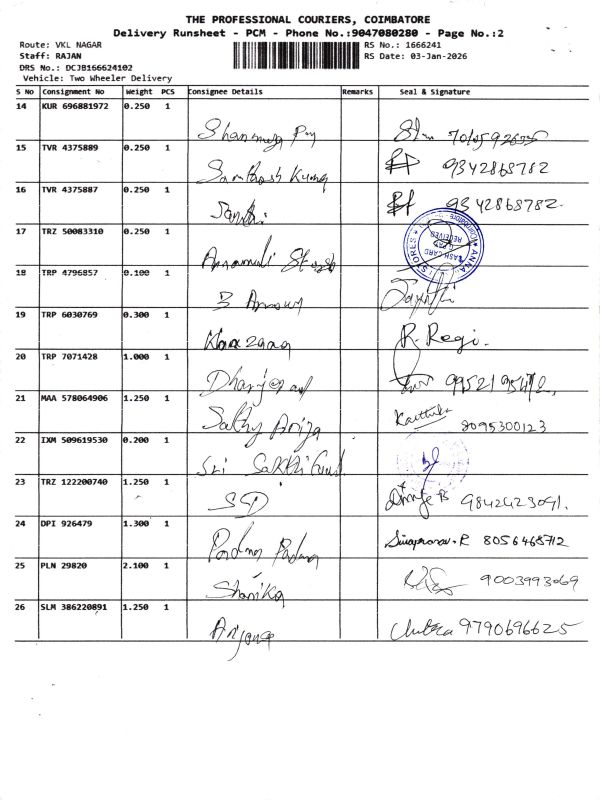 THE PROFESSIONAL COURIERS, COIMBATORE
Delivery Runsheet - PCM - Phone No.:9047080280 - Page No.:2
Route: VKL NAGAR RS No.: 1666241
Staff: RAJAN RS Date: 03-Jan-2026
DRS No.: DCJB166624102
Vehicle: Two Wheeler Delivery
S No Consignment No Weight PCS Consignee Details Remarks Seal & Signature
14 KUR 696881972 0.250 1
15 TVR 4375889 0.250 1 Santhosh Kumar 9342868782
16 TVR 4375887 0.250 1 9342868782.
17 TRZ 50083310 0.250 1 STORES ANNA
18 TRP 4796857 0.100 1 B
19 TRP 6030769 0.300 1 R. Regi.
20 TRP 7071428 1.000 1
21 MAA 578064906 1.250 1 Karthika 8095300123
22 IXM 509619530 0.200 1 Sri Sakthi
23 TRZ 122200740 1.250 1 SD 9842423091.
24 DPI 926479 1.300 1 Padma 8056468712
25 PLN 29820 2.100 1 Shanika 9003993069
26 SLM 386220891 1.250 1 9790696625